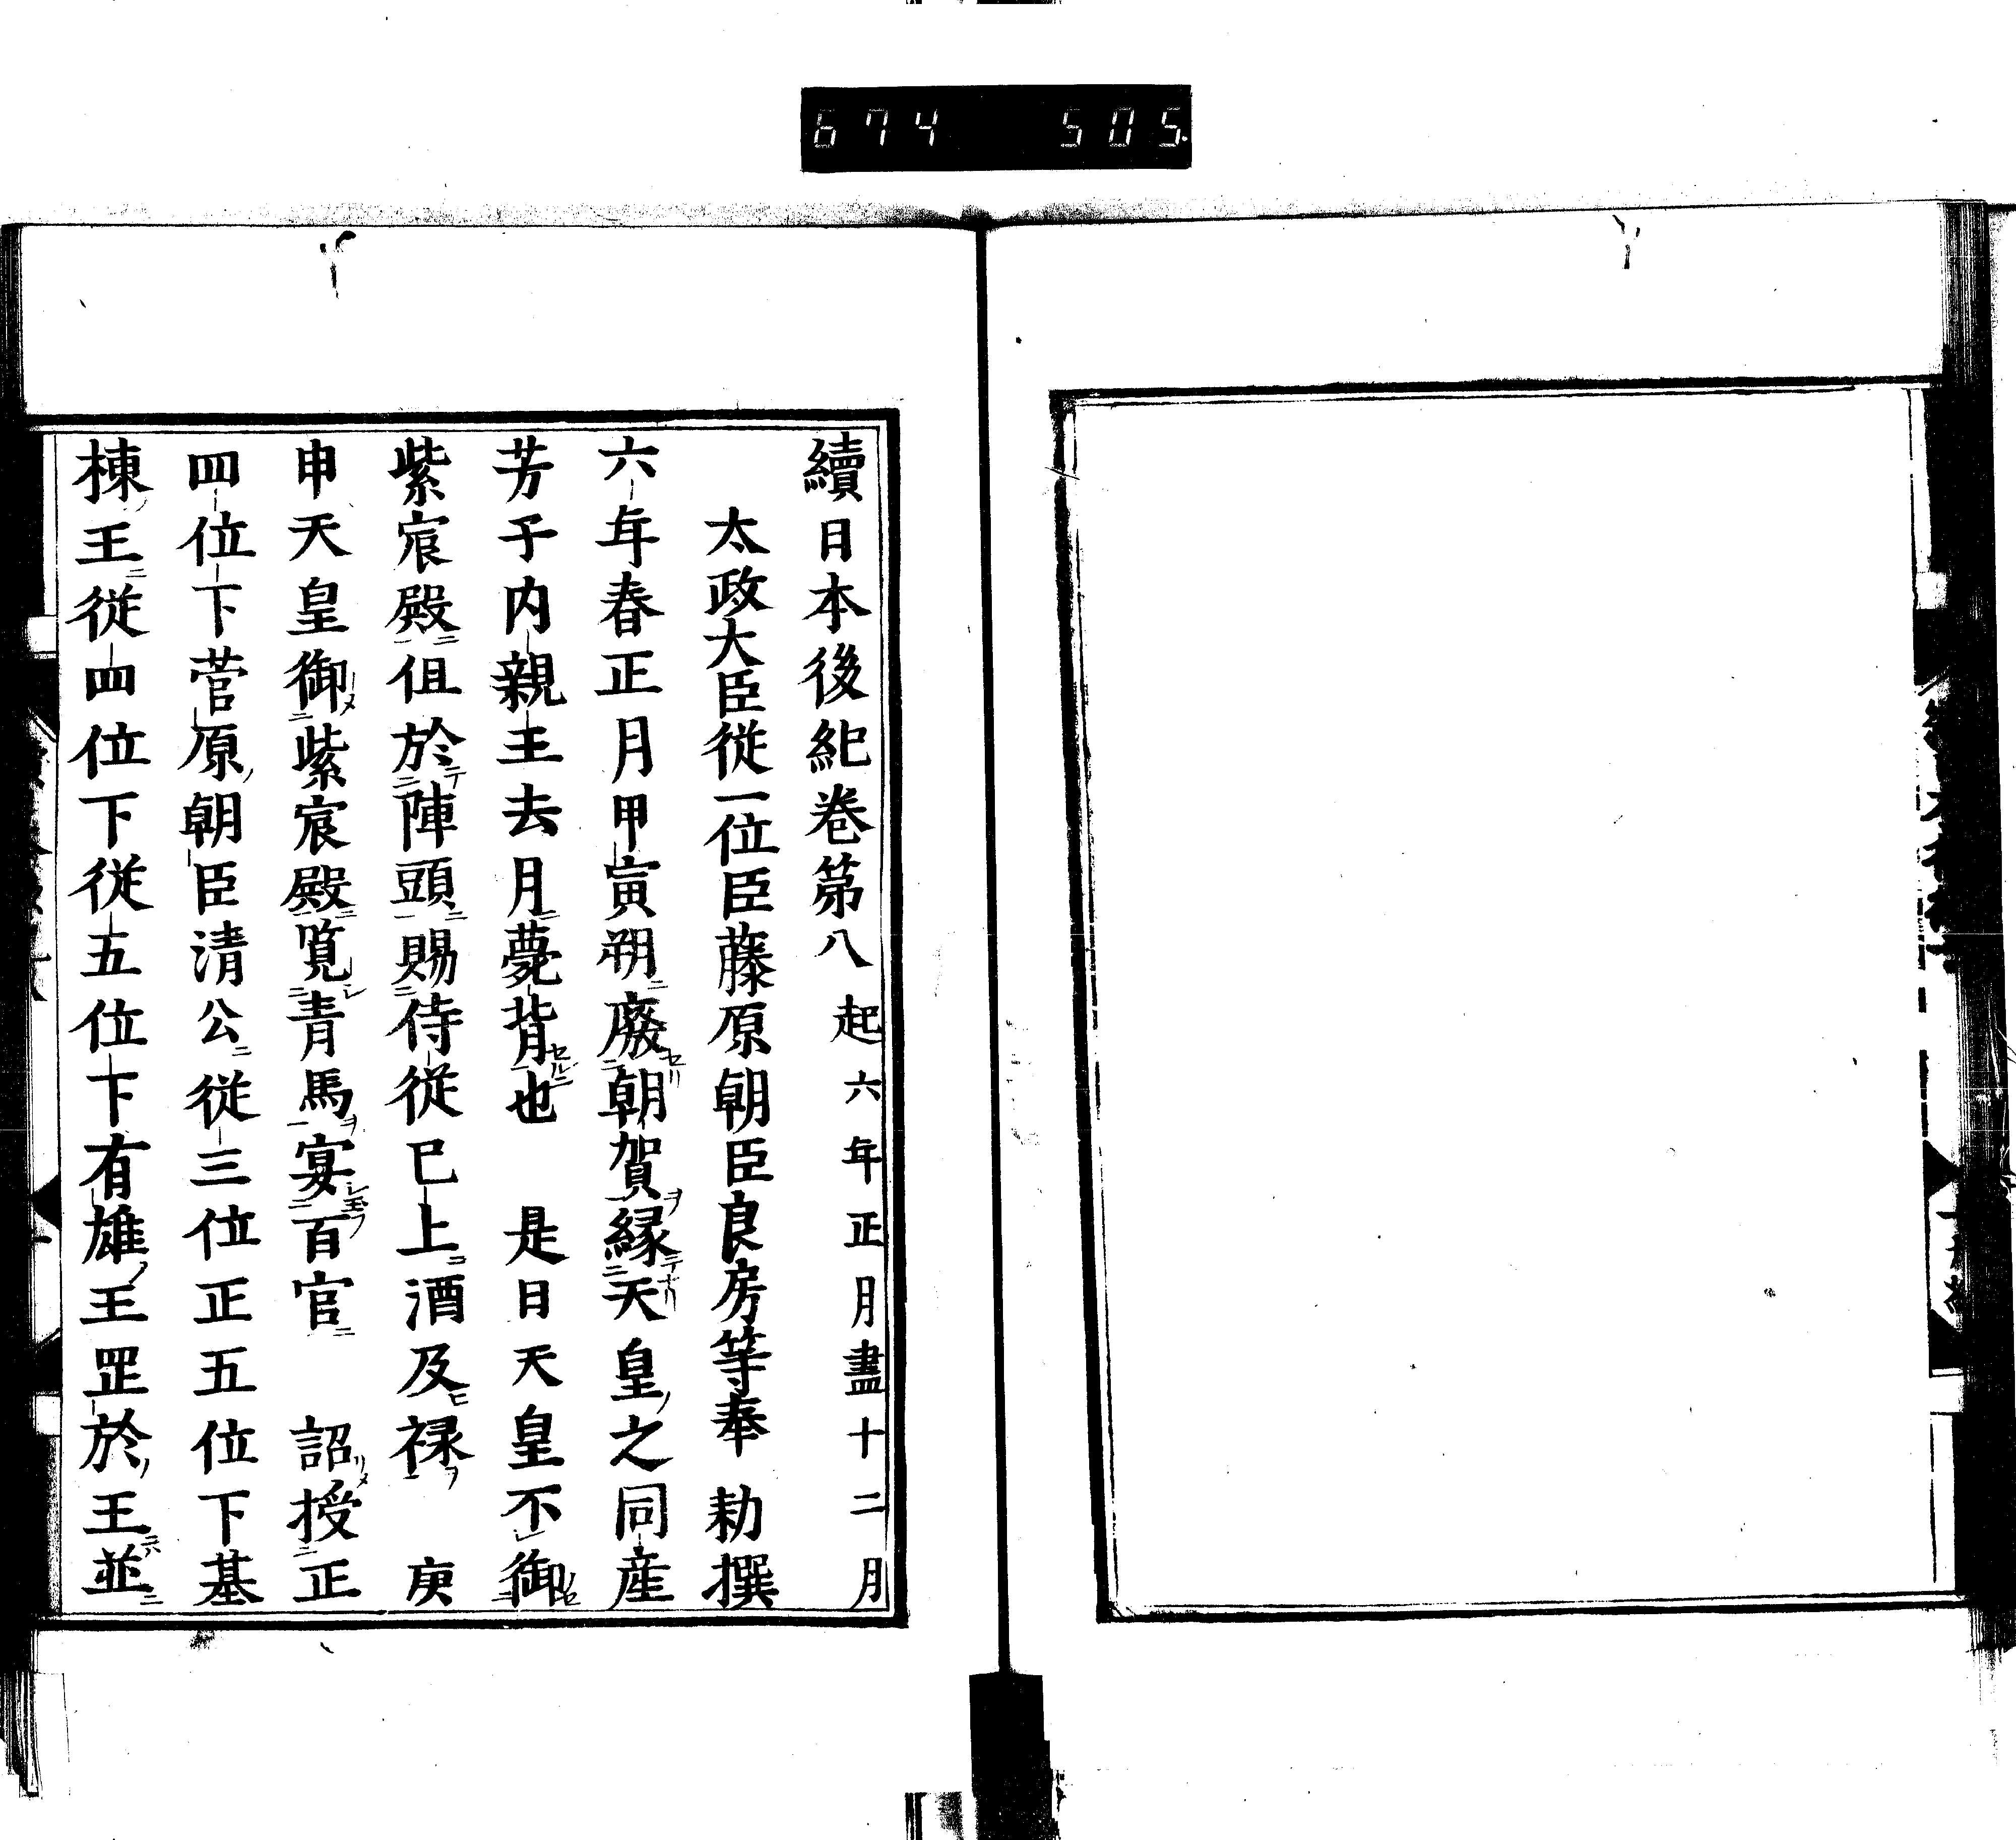 674 505
續日本後紀卷第八起六年正月盡十二月
太政大臣從一位臣藤原朝臣良房等奉勅撰
六年春正月甲寅朔廢朝賀縁天皇之同產
芳子內親王去月薨背也 是日天皇不御
紫宸殿但於陣頭賜侍從已上酒及祿 庚
申天皇御紫宸殿覧青馬宴百官 詔授正
四位下菅原朝臣清公從三位正五位下基
棟王從四位下從五位下有雄王罡於王並